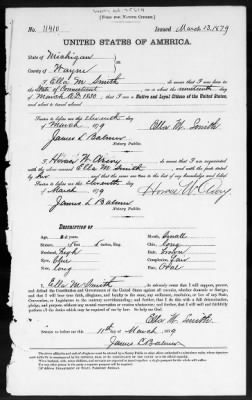 [FORM FOR NATIVE CITIZEN.]
No. 11410 Issued March 13, 1879
UNITED STATES OF AMERICA.
State of Michigan
County of Wayne
I, Ella M. Smith, do swear that I was born in
State of Connecticut, on or about the nineteenth day of
March A.D. 1850, that I am a Native and Loyal Citizen of the United States,
and about to travel abroad.
day
of March 1879 Ella M. Smith
James L. Balmer
Notary Public.
do swear that I am acquainted
with the above named Ella M. Smith and with the facts stated
by her and that the same are true to the best of my knowledge and belief.
Sworn to before me this eleventh day
of March 1879
James L. Balmer
Notary Public.
DESCRIPTION OF
Age Mouth small
Stature Chin long
Forehead high Hair brown
Eyes blue Complexion fair
Nose long Face oval
I, Ella M. Smith do solemnly swear that I will support, protect,
and defend the Constitution and Government of the United States against all enemies, whether domestic or foreign;
and that I will bear true faith, allegiance, and loyalty to the same, any ordinance, resolution, or law of any State,
Convention, or Legislature to the contrary notwithstanding; and further, that I do this with a full determination,
pledge, and purpose, without any mental reservation or evasion whatsoever; and further, that I will well and faithfully
perform all the duties which may be required of me by law. So help me God.
Ella M. Smith
Sworn to before me this 11th day of March 1879
James L. Balmer